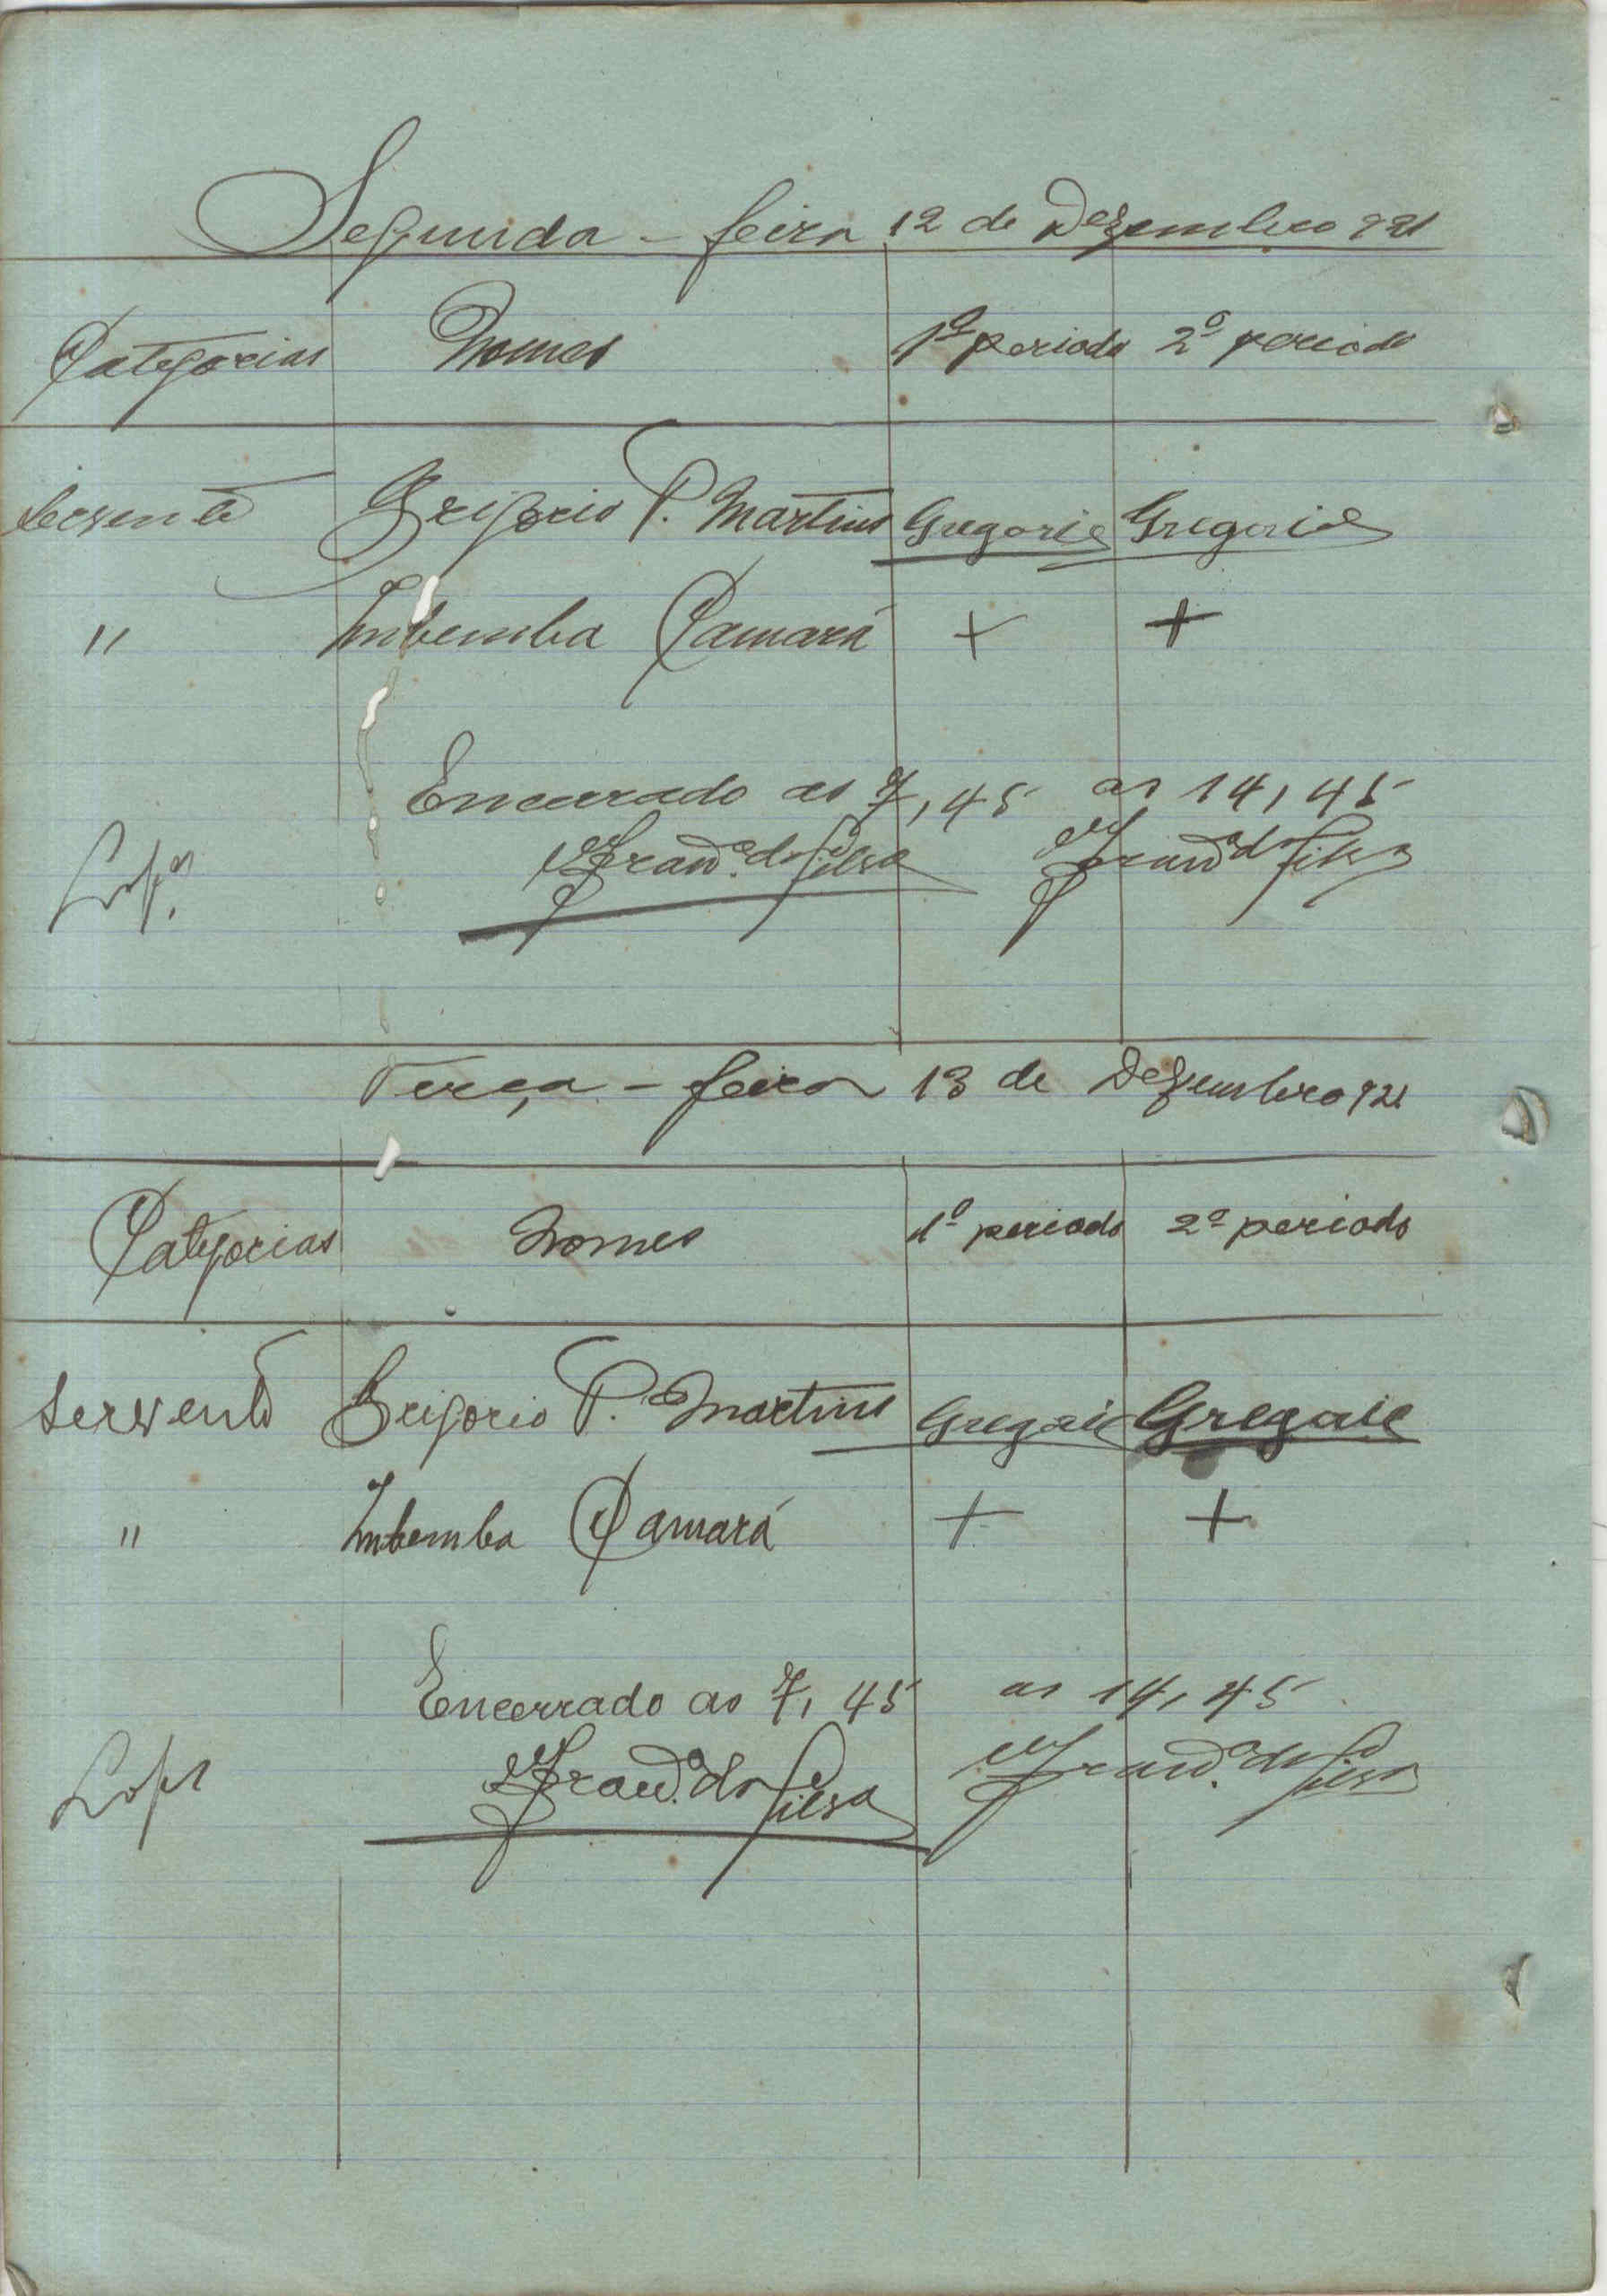 Segunda - feira 12 de Dezembro 921
Categorias Nomes 1º periodo 2º periodo
Servente Grigorio P. Martins Gregorio Gregorio
" Imbemba Camará + +
Encerrado as 7,45 as 14,45
Lopes Franco. da Silva Franco da Silva
Terça - feira 13 de Dezembro 921
Categorias Nomes 1º periodo 2º periodo
Servente Grigorio P. Martins Gregorio Gregorio
" Imbemba Camará + +
Encerrado as 7,45 as 14,45
Lopes Franco. da Silva Franco. da Silva